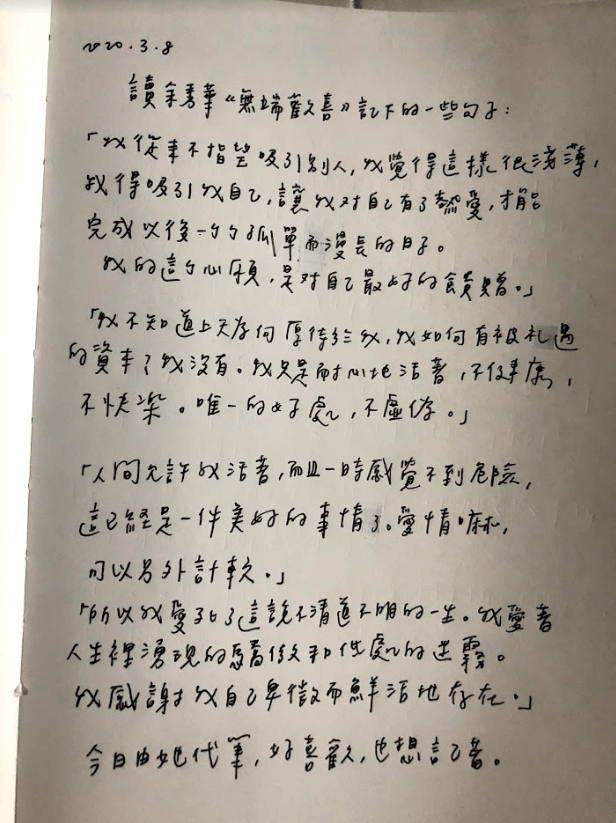 2020.3.8
讀余秀華《無端歡喜》記下的一些句子：
「我從來不指望吸引別人，我覺得這樣很淺薄，
我得吸引我自己，讓我對自己有了熱愛，才能
完成以後一个个孤單而漫長的日子。
我的這个心願，是對自己最好的饋贈。」
「我不知道上天為何厚待於我，我如何有被礼遇
的資本了我沒有。我只是耐心地活著，不健康，
不快樂。唯一的好處，不虛偽。」
「人間允許我活著，而且一時感覺不到危險，
這已經是一件美好的事情了。愛情嘛，
可以另外計較。」
「所以我愛了這說不清道不明的一生。我愛著
人生裡湧現的驕傲和低處的迷霧。
我感謝我自己卑微而鮮活地存在。」
今日由她代筆，好喜歡，也想記著。